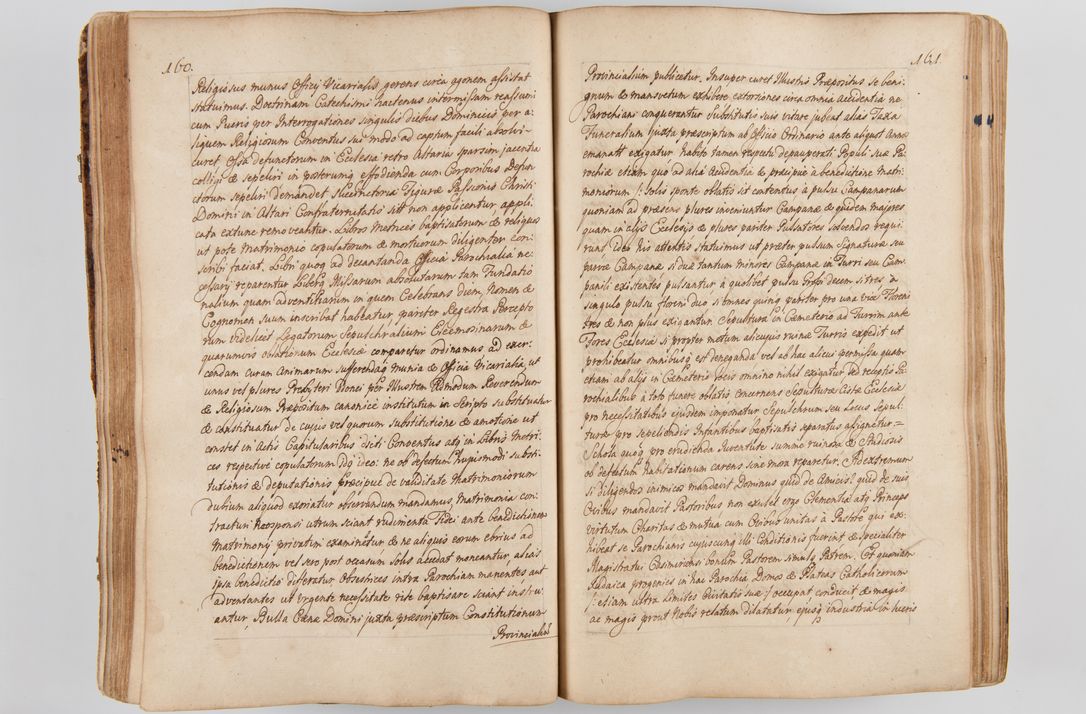 160.
Religiosus munus Officij Vicarialis gerens circa agonem assistat
statuimus. Doctrinam Catechismi hactenus intermissam reassumi
cum Pueris per Interrogationes singulis diebus Dominicis per a:
liquem Religiosum Conventus sui modo ad captum facili absolvi
curet. Ossa defunctorum in Ecclesia retro Altaria sparsim jacentia
colligi & sepeliri in posterumq effodienda cum Corporibus Defun
ctorum sepeliri demandet. Figuræ Passionis Christi
Domini in Altari Confraternitatis sitæ non applicentur appli:
cata extunc removeantur. Libros Metrices baptisatorum & reliquos
ut pote Matrimonio copulatorum & mortuorum diligenter con:
scribi faciat. Libri quoq ad decantanda Officia Parochialia ne:
cessarij reparentur Libera Missarum absolutarum tam Fundatio
nalium quam adventitiarum in quem Celebrans diem, Nomen &
Cognomen suum inscribat habeatur pariter Regestra Percepto
rum videlicet Legatorum Sepulchralium Eleemosinarum &
quarumvis oblationum Ecclesiæ comparetur ordinamus ad exer:
cendam curam Animarum sufferendaq munia & Officia Vicarialia, ut
unus vel plures Presbyteri Idonei per Illustrem Rndum Reverendum
& Religiosum Præpositum canonicè institutum in Scripto substituatur
& constituatur de cujus vel quorum substitutione & amotione ut
constet in Actis Capitularibus dicti Conventus atq in Libris Metri:
ces respective copulatorum Idq ideo: ne ob defectum hujusmodi substi:
tutionis & deputationis præcipue de validitate Matrimoniorum
dubium aliquod exoriatur observandum mandamus, Matrimonia con:
tracturi Neosponsi utrum sciant rudimenta Fidei ante benedictionem
Matrimonij privatim examinetur & ne aliquis eorum ebrius ad
benedictionem vel sero post occasum solis accedat moneantur, alias
ipsa benedictio differatur, Obstetrices intra Parochiam manentes aut
adventantes ut urgente necessitate rite baptisare sciant instru:
antur, Bulla Cœnæ Domini juxta præscriptum Constitutionum
Provincialiu
161.
Provincialium publicetur. Insuper curet Illustris Præpositus se beni
gnum & mansvetum exhibere extorsiones circa omnia Accidentia ne
Parochiani conquerantur Substitutis suis vitare jubeat alias Taxa
Funeralium juxta præscriptum ab Officio Ordinario ante aliquot Annos
emanatt exigatur habito tamen respectu depauperati Populi suæ Pa
rochiæ etiam quo ad alia Accidentia & præcipuè à benedictione Matri
moniorum /: solis sponte oblatis sit contentus à pulsu Campanarum
quoniam ad præsens plures inveniuntur Campanæ & quidem majores
quam in alijs Ecclesijs & plures pariter Pulsatores solvendos requi
runt ideo his attentis statuimus ut præter pulsum Signaturæ seu
parvæ Campanæ si duæ tantum minores Campanæ in Turri seu Cam
panili existentes pulsantur à quolibet pulsu decem si tres à
singulo pulsu floreni duo si omnes quinq pariter pro una vice Floreni
tres & non plus exigantur. Sepultura in Cemeterio ad Turrim ante
Fores Ecclesiæ si propter metum alicujus ruinæ Turris expedit ut
prohibeatur omnibusq est deneganda vel ab hac alicui permissa quam
etiam ab alijs in Cemeterio locis omnino nihil exigatur sed receptis Pa
rochialibus à toto funere oblatis concernens Sepultura Cistæ Ecclesiæ
pro necessitatibus ejusdem imponatur Sepulchrum seu Locus Sepul
turæ pro sepeliendis Infantibus baptisatis separatus assignetur.=
Schola quoq pro erudienda Juventute summe ruinosa & Studiosis
ob defectum habitationum carens sine mora reparetur. Ad extremum
si diligendos inimicos mandavit Dominus quid de Amicis! quid de suis
Ovibus mandavit Pastoribus non exulet ergo Clementia atq Princeps
virtutum Charitas & mutua cum Ovibus unitas à Pastore qui ex:
hibeat se Parochianis cujuscunq illi Conditionis fuerint & specialiter
Magistratui Casimiriensi bonum Pastorem simulq Patrem. Et quoniam
Judaica progenies in hac Parochia Domos & Plateas Catholicorum
/: etiam ultra Limites Civitatis suæ :/ occupat conducit & magis
ac magis prout Nobis relatum dilatatur, ejusq industria in hisris